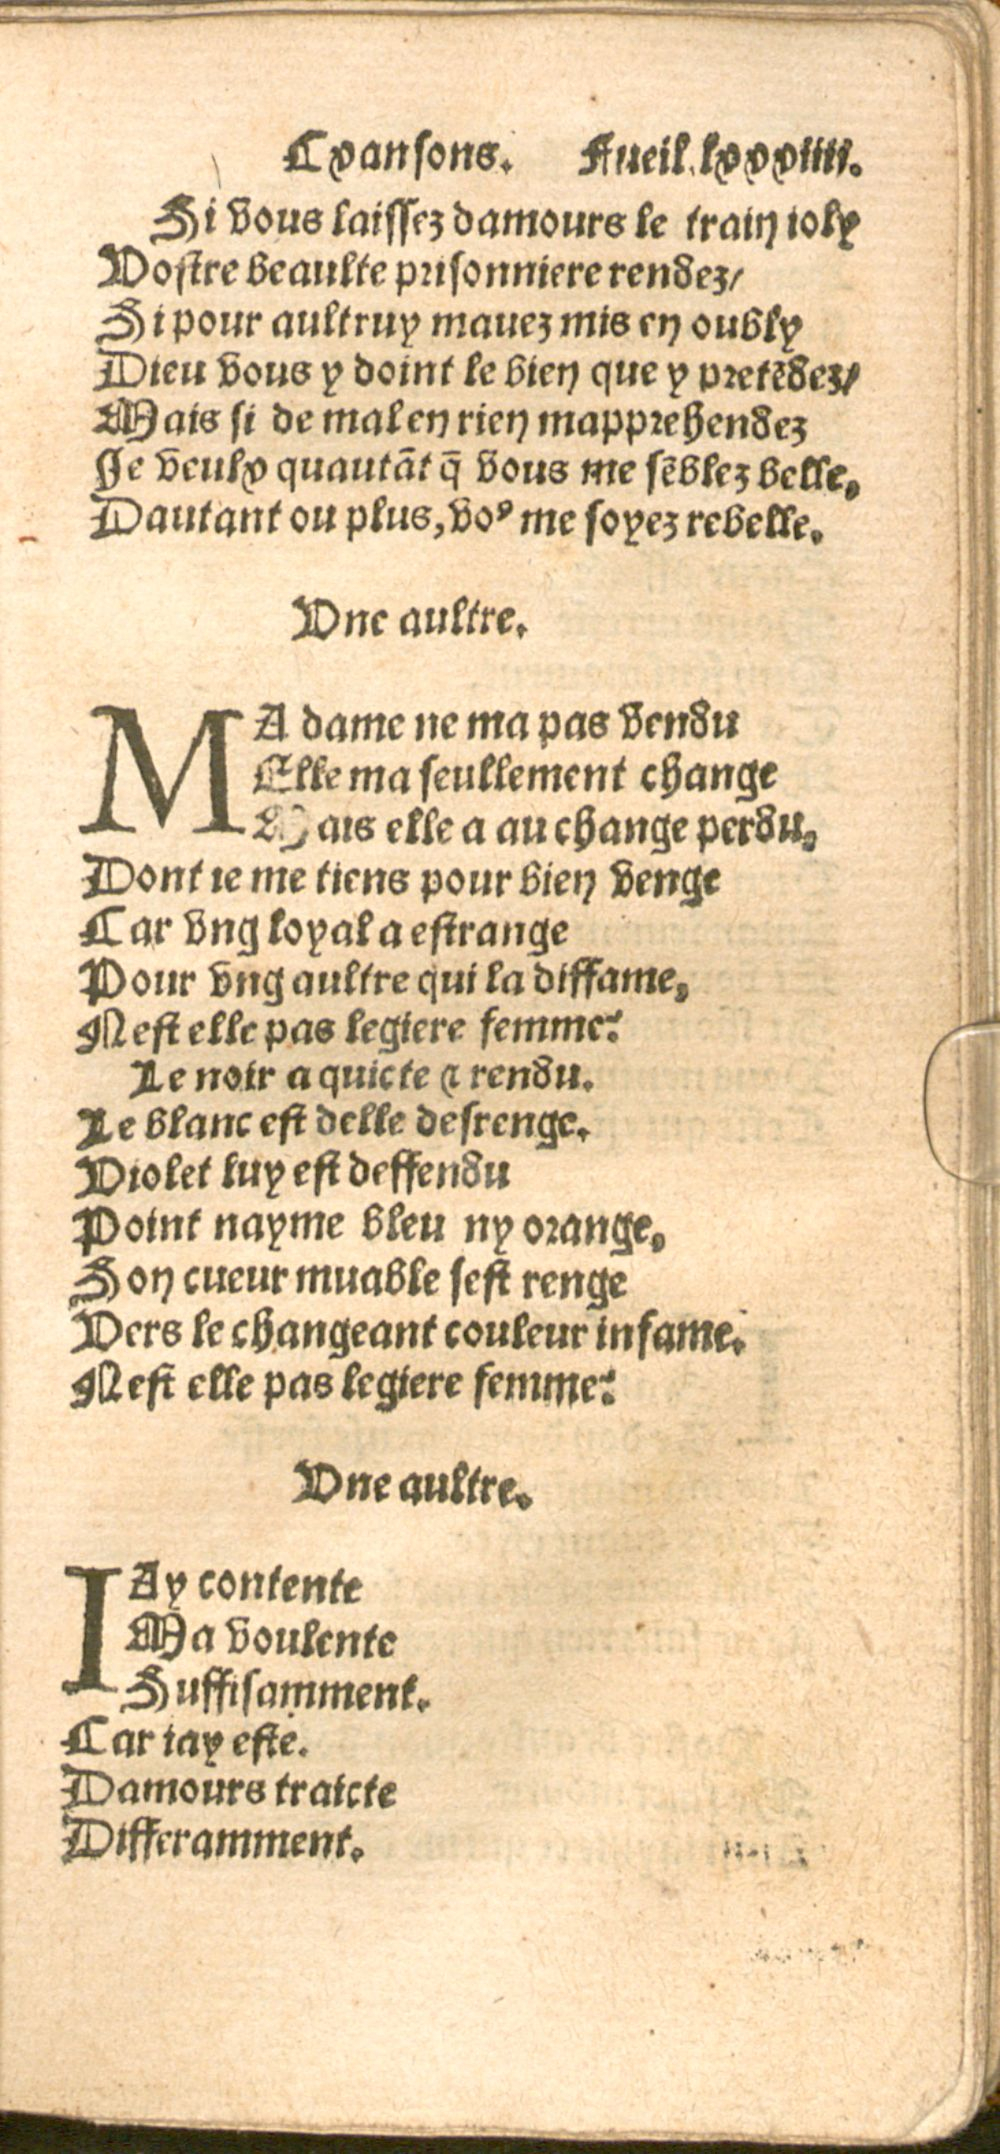 Cxansons. Fueil.lxxxiiii.
Si vous laissez damours le train ioly
Vostre beaulte prisonniere rendez/
Si pour aultruy mauez mis en oubly
Dieu vous y doint le bien que y pretẽdez/
Mais si de mal en rien mapprehendez
Je veulx quautãt q̃ vous me sẽblez belle,
Dautant ou plus, voꝰ me soyez rebelle.
Vne aultre.
MA dame ne ma pas vendu
Elle ma seullement change
Mais elle a au change perdu,
Dont ie me tiens pour bien venge
Car vng loyal a estrange
Pour vng aultre qui la diffame,
Nest elle pas legiere femme?
Le noir a quicte ⁊ rendu.
Le blanc est delle desrenge.
Violet luy est deffendu
Point nayme bleu ny orange,
Son cueur muable sest renge
Vers le changeant couleur infame.
Nest elle pas legiere femme?
Vne aultre.
IAy contente
Ma voulente
Suffisamment.
Car iay este.
Damours traicte
Differamment.